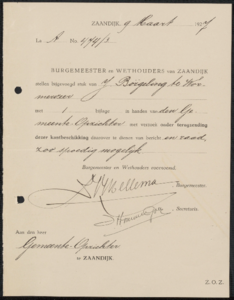 ZAANDIJK, 9 Maart 1927
La A No. 594/3.
BURGEMEESTER EN WETHOUDERS VAN ZAANDIJK
stellen bijgevoegd stuk van J. Borgeling te Wor-
merveer
met 1 bijlage in handen van den Ge-
meente-Opzichter met verzoek onder terugzending
dezer kantbeschikking daarop te dienen van bericht en raad,
zoo spoedig mogelijk
Burgemeester en Wethouders voornoemd,
Burgemeester.
Secretaris.
Aan den Heer
Gemeente-Opzichter
te ZAANDIJK.
Z.O.Z.